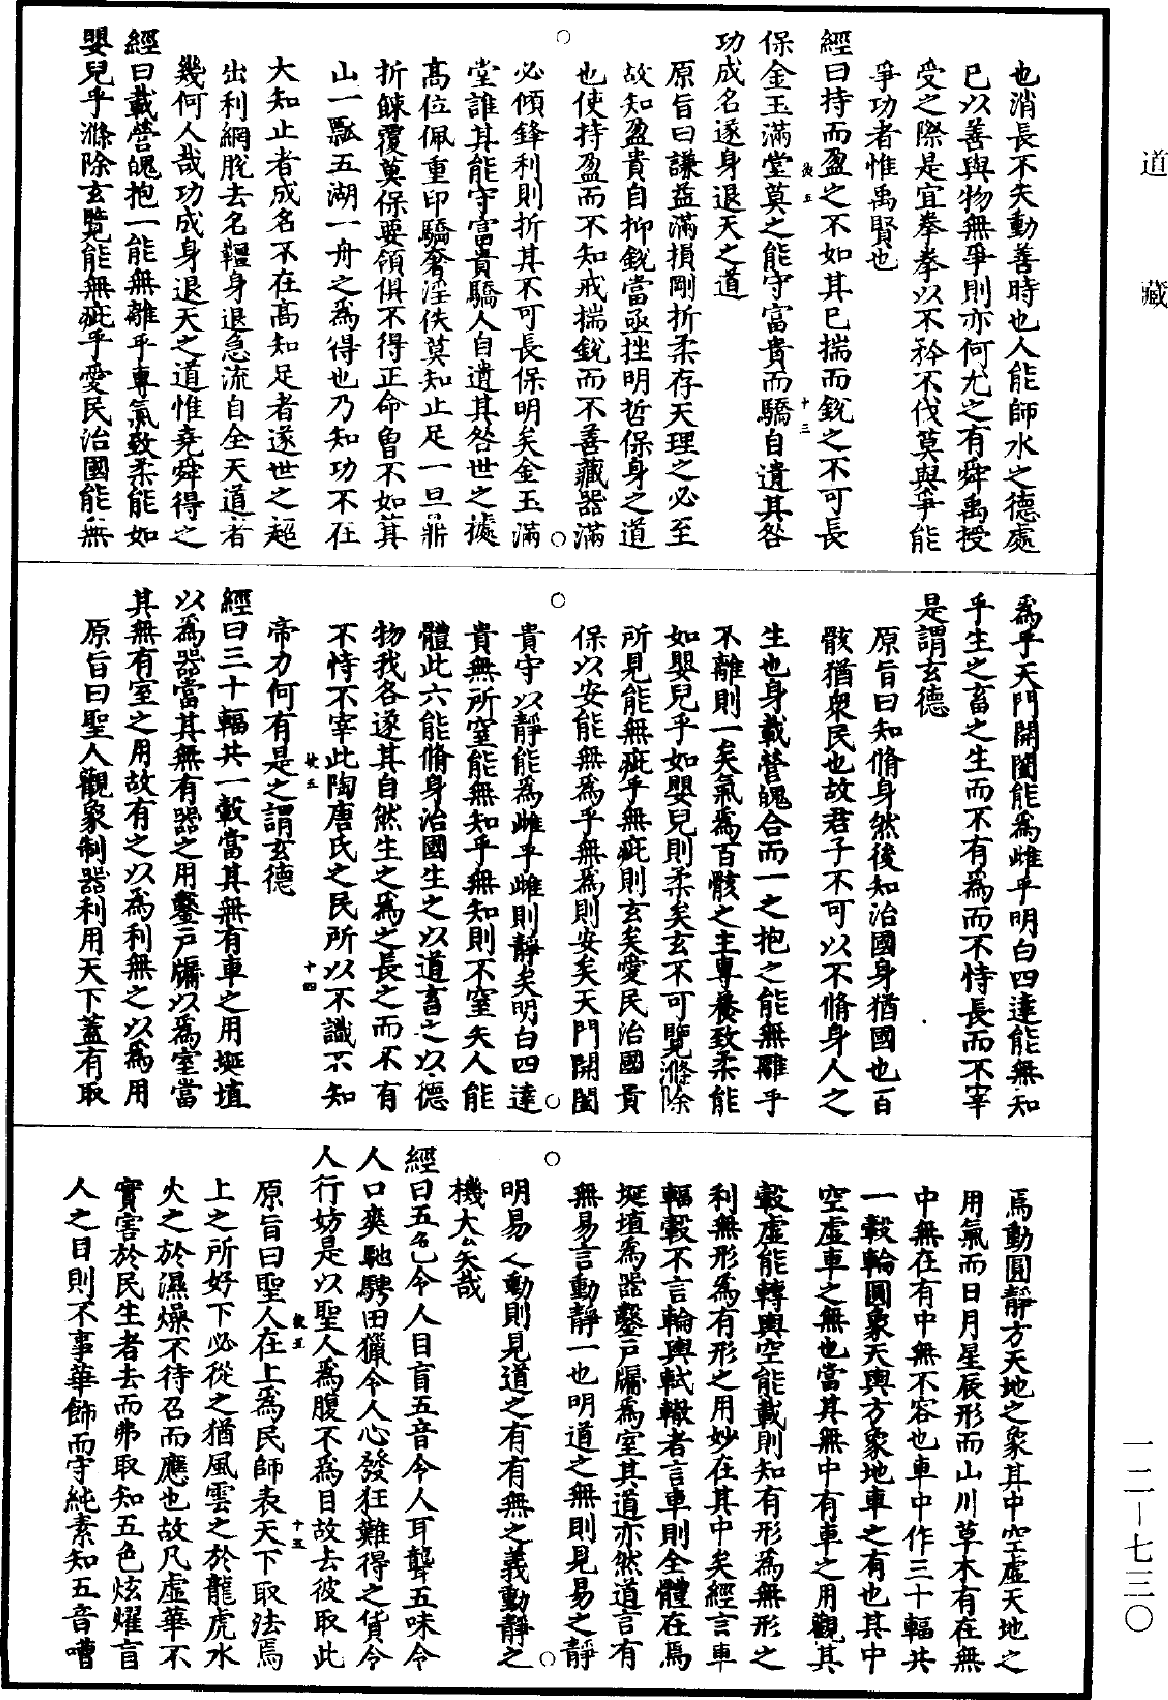 道藏
也消長不失動善時也人能師水之德處
已以善與物無爭則亦何尤之有舜禹授
受之際是宜拳拳以不矜不伐莫與爭能
爭功者惟禹賢也
經曰持而盈之不如其已揣而銳之不可長
保金玉滿堂莫之能守富貴而驕自遺其咎
功成名遂身退天之道
原旨曰謙益滿損剛折柔存天理之必至
故知盈貴自抑銳當亟挫明哲保身之道
也使持盈而不知戒揣銳而不善藏器滿
必傾鋒利則折其不可長保明矣金玉滿
堂誰其能守富貴驕人自遺其咎世之據
高位佩重印驕奢淫佚莫知止足一旦鼎
折餗覆莫保要領俱不得正命曾不如箕
山一瓢五湖一舟之為得也乃知功不在
大知止者成名不在高知足者遂世之超
出利網脫去名韁身退急流自全天道者
幾何人哉功成身退天之道惟堯舜得之
經曰載營魄抱一能無離乎專氣致柔能如
嬰兒乎滌除玄覽能無疵乎愛民治國能無
為乎天門開闔能為雌乎明白四達能無知
乎生之畜之生而不有為而不恃長而不宰
是謂玄德
原旨曰知脩身然後知治國身猶國也百
骸猶衆民也故君子不可以不脩身人之
生也身載營魄合而一之抱之能無離乎
不離則一矣氣為百骸之主專養致柔能
如嬰兒乎如嬰兒則柔矣玄不可覽滌除
所見能無疵乎無疵則玄矣愛民治國貴
保以安能無為乎無為則安矣天門開闔
貴守以靜能為雌乎雌則靜矣明白四達
貴無所窒能無知乎無知則不窒矣人能
體此六能脩身治國生之以道畜之以德
物我各遂其自然生之為之長之而不有
不恃不宰此陶唐氏之民所以不識不知
帝力何有是之謂玄德
經曰三十輻共一轂當其無有車之用埏埴
以為器當其無有器之用鑿戶牖以為室當
其無有室之用故有之以為利無之以為用
原旨曰聖人觀象制器利用天下蓋有取
焉動圓靜方天地之象其中空虛天地之
用氣而日月星辰形而山川草木有在無
中無在有中無不容也車中作三十輻共
一轂輪圓象天輿方象地車之有也其中
空虛車之無也當其無中有車之用觀其
轂虛能轉輿空能載則知有形為無形之
利無形為有形之用妙在其中矣經言車
輻轂不言輪輿軾轍者言車則全體在焉
埏埴為器鑿戶牖為室其道亦然道言有
無易言動靜一也明道之無則見易之靜
明易之動則見道之有有無之義動靜之
機大矣哉
經曰五色令人目盲五音令人耳聾五味令
人口爽馳騁田獵令人心發狂難得之貨令
人行妨是以聖人為腹不為目故去彼取此
原旨曰聖人在上為民師表天下取法焉
上之所好下必從之猶風雲之於龍虎水
火之於濕燥不待召而應也故凡虛華不
實害於民生者去而弗取知五色炫燿盲
人之目則不事華飾而守純素知五音嘈
一二—七三〇